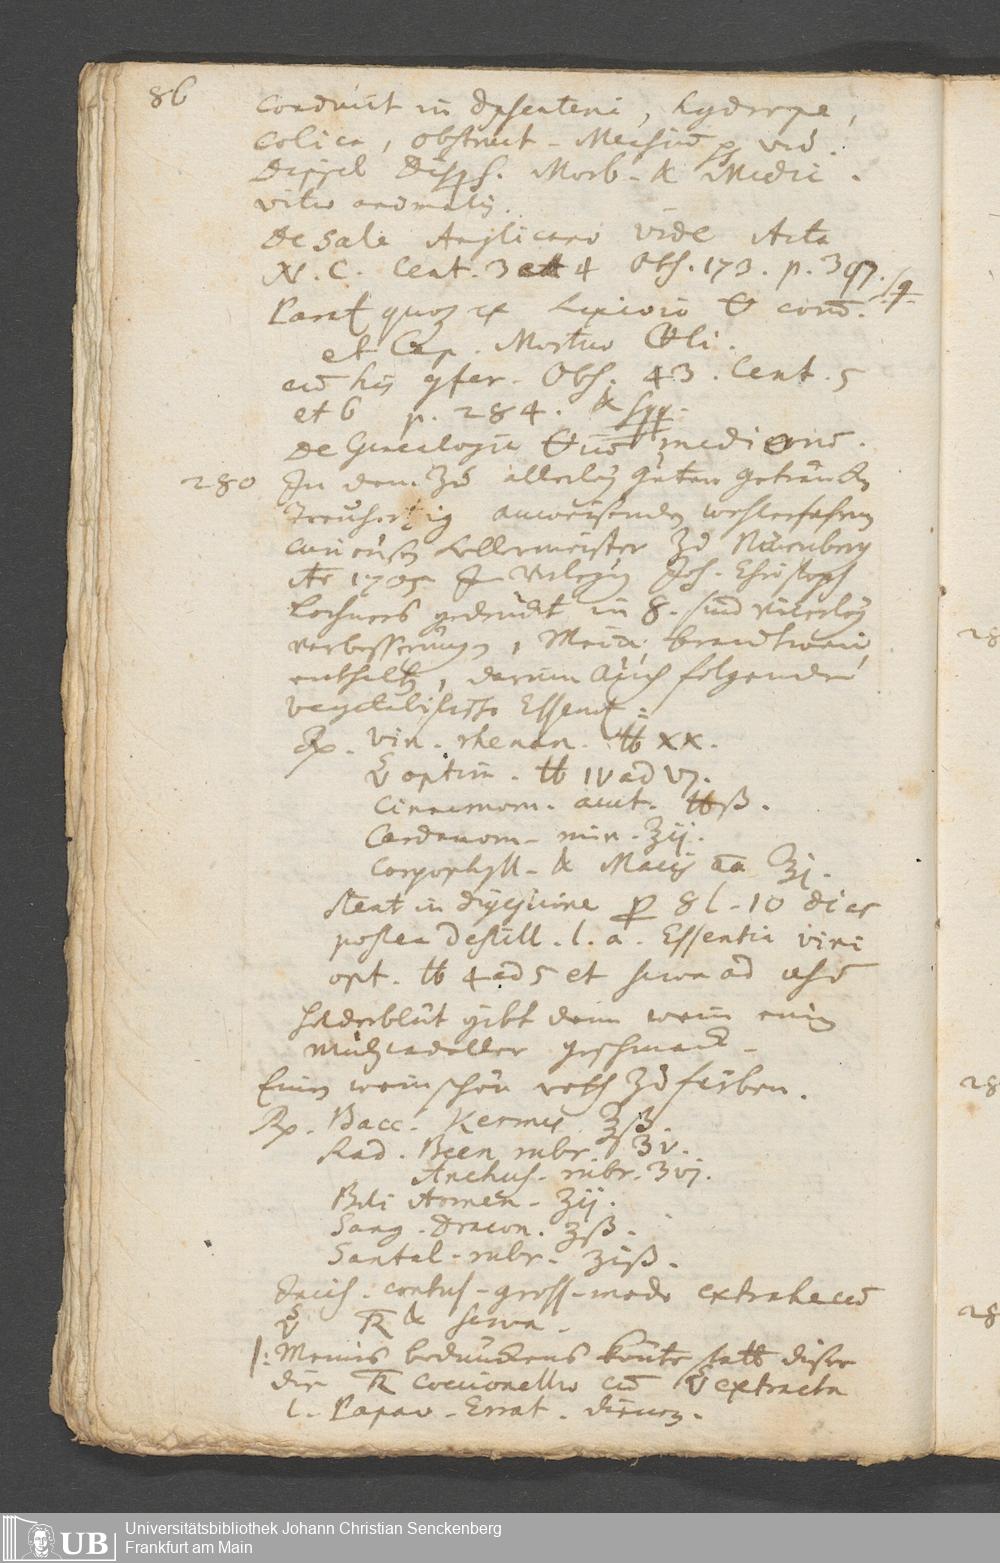 86
conducit in Dysenteria, hydrope,
colica, obstruct. Mensiū
Dippel Disp. Morb. & Medic.
vitae animalis.
de Sale Anglicano vide Acta
N. C. Cent. 3 et 4 Obs. 173. p. 397.
Parat quoq ex Lixivio
et Cap. Mortuo
cū his Obs. 43. Cent. 5
et 6 p. 284. & sqq.
de Genealogia medi
280 In dem Zū allerley guten geträncken
treuhertzig anweisenden wohlerfahrnen
curieusen Kellermeister Zū Nürenberg
Ao 1705 In Verlegung Joh. Christoph
Lochners gedruckt in 8. sind vielerley
verbesserungen, Wein, brandtwein
enthalten, darin auch folgende
vegetabilische Essent:
Rp. vin. rhenan. ℔ XX.
optim. ℔ IV ad VI.
Cinnamom. acut. ℔ß.
Cardamom. min. ℥ij.
Caryophyll. & Macis aa ℥j.
Stent in digestione p 8 l. 10 dies
postea destill. l. a. Essentia vini
opt. ℔ 4 ad 5 et serva ad usū
Holderblüt gibt dem wein einen
Muscadeller geschmack.
Einen wein schön roth Zū färben.
Rp. Bacc. Kermes ℥ß.
Rad. Been rubr. ʒv.
Anchus. rubr. ʒvj.
Boli Armen. ℥ij.
Sang. Dracon. ℥ß.
Santal. rubr. ℥iß.
Incis. contus. gross. modo extrahe cū
& serva.
|: Meines bedünckens könte statt dieser
die coccionello cū extracta
l. Papav. Errat. dienen.
28
28
28
Universitätsbibliothek Johann Christian Senckenberg
Frankfurt am Main
UB